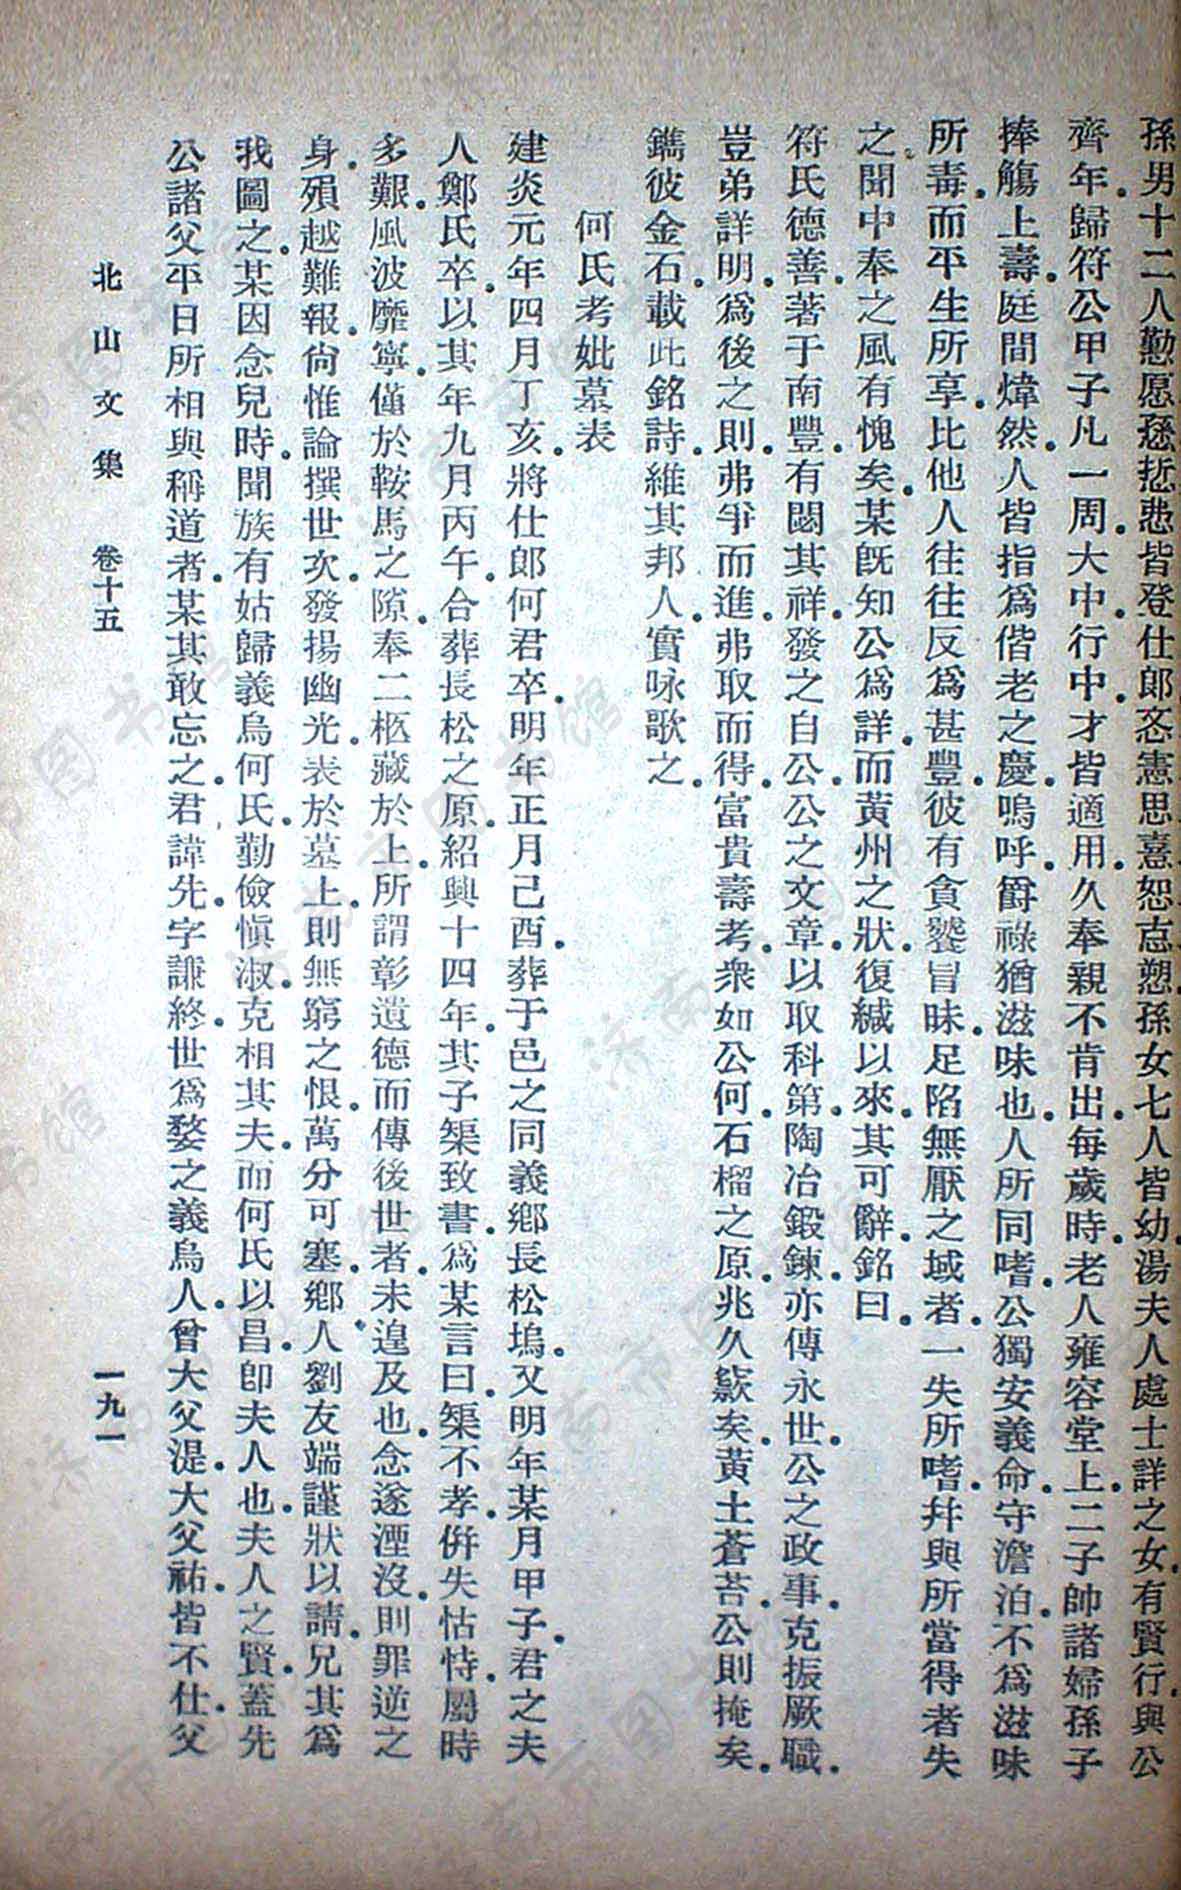 孫男十二人懃愿惥悊惎皆登仕郎忞憲思憙恕志愬孫女七人皆幼湯夫人處士詳之女有賢行與公
齊年歸符公甲子凡一周大中行中才皆適用久奉親不肯出每歲時老人雍容堂上二子帥諸婦孫子
捧觴上壽庭間煒然人皆指爲偕老之慶嗚呼爵祿猶滋味也人所同嗜公獨安義命守澹泊不爲滋味
所毒而平生所享比他人往往反爲甚豐彼有貪饕冒昧足陷無厭之域者一失所嗜幷與所當得者失
之聞中奉之風有愧矣某旣知公爲詳而黃州之狀復緘以來其可辭銘曰
符氏德善著于南豐有閟其祥發之自公公之文章以取科第陶冶鍛鍊亦傳永世公之政事克振厥職
豈弟詳明爲後之則弗爭而進弗取而得富貴壽考衆如公何石榴之原兆久窾矣黃土蒼苔公則掩矣
鐫彼金石載此銘詩維其邦人實咏歌之
何氏考妣墓表
建炎元年四月丁亥將仕郎何君卒明年正月己酉葬于邑之同義鄉長松塢又明年某月甲子君之夫
人鄭氏卒以其年九月丙午合葬長松之原紹興十四年其子榘致書爲某言曰榘不孝倂失怙恃屬時
多艱風波靡寧僅於鞍馬之隙奉二柩藏於上所謂彰遺德而傳後世者未遑及也念遂湮沒則罪逆之
身殞越難報尙惟論撰世次發揚幽光表於墓上則無窮之恨萬分可塞鄉人劉友端謹狀以請兄其爲
我圖之某因念兒時聞族有姑歸義烏何氏勤儉愼淑克相其夫而何氏以昌卽夫人也夫人之賢蓋先
公諸父平日所相與稱道者某其敢忘之君諱先字謙終世爲婺之義烏人曾大父湜大父祐皆不仕父
北山文集 卷十五 一九一